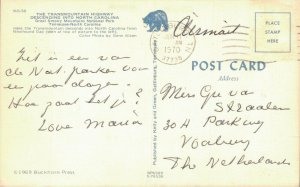 THE TRANSMOUNTAIN HIGHWAY
DESCENDING INTO NORTH CAROLINA
Great Smoky Mountains National Park
Tennessee-North Carolina
Here the Transmountain descends into North Carolina from
Newfound Gap
Color Photo by
Zit in een van
de Nat. parken van
een paar dagen.
Hoe gaat het je?
Love Maria
©1969 Buckhorn Press
Airmail
1970
PLACE
STAMP
HERE
POST CARD
Address
Miss
30A Parkweg
Voorburg
The Netherlands